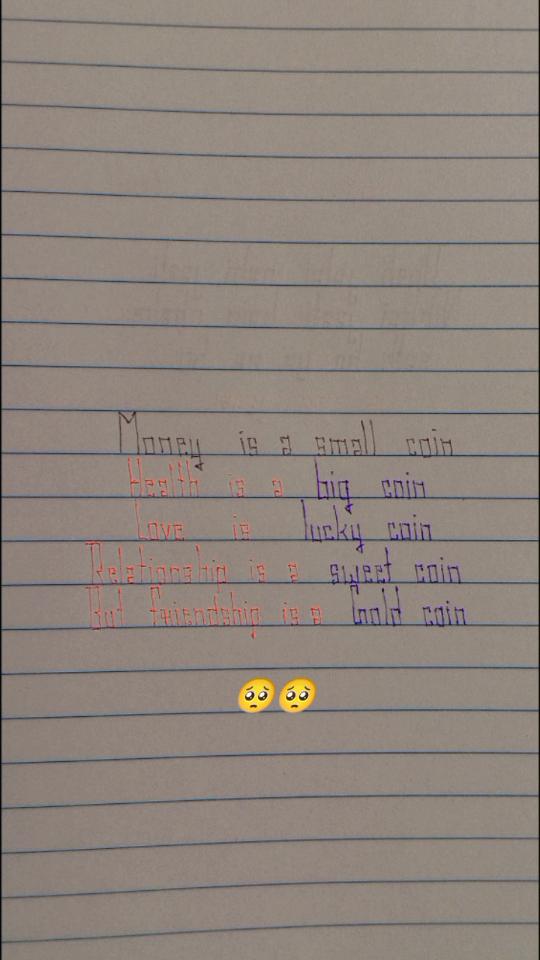 Money is a small coin
Health is a big coin
Love is lucky coin
Relationship is a sweet coin
But friendship is a Gold coin
🥺🥺